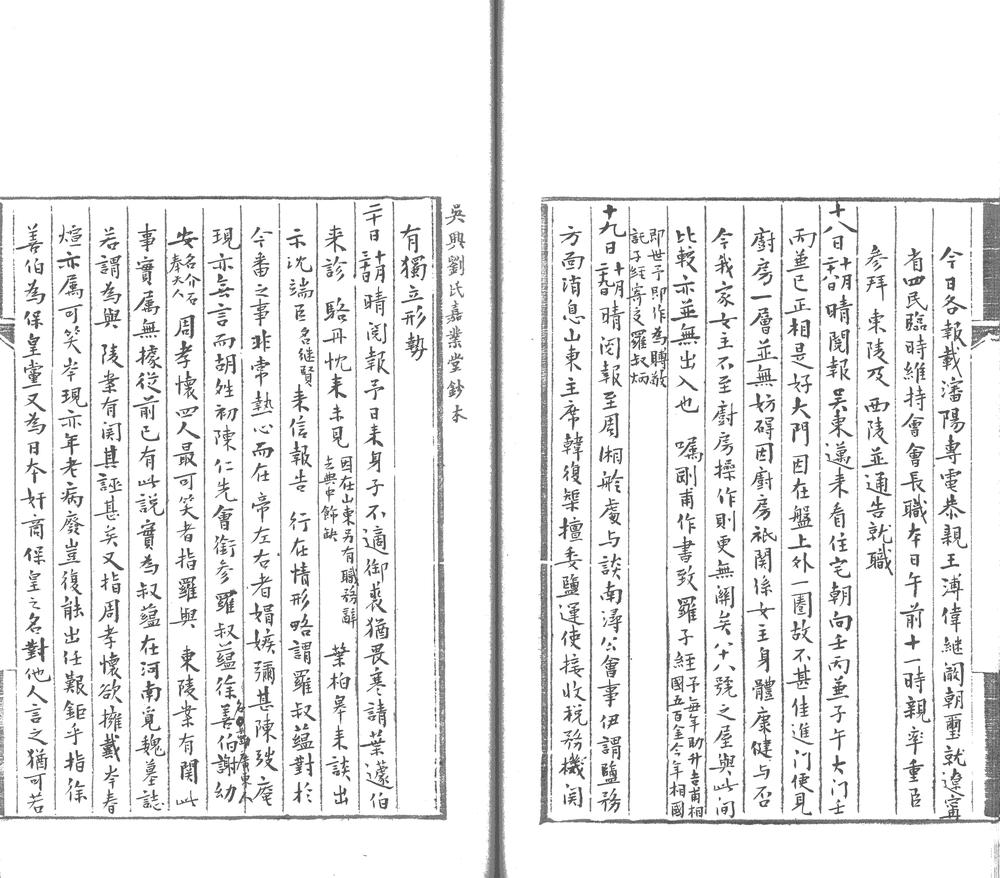 今日各報載瀋陽專電恭親王溥偉繼嗣朝璽就遼寧
省四民臨時維持會會長職本日午前十一時親率重臣
參拜 東陵及 西陵並通告就職
十八日 晴閱報 吳東邁來看住宅朝向壬丙兼子午大门壬
丙兼已正相是好大門因在盤上外一圈故不甚佳進门便見
廚房一層並無妨碍因廚房祇關係女主身體康健与否
今我家女主不至廚房操作則更無關矣八十八號之屋與此间
比較亦並無出入也 囑剛甫作書致羅子經 子每年助升吉甫相國五百金今年相國即世予即作為賻敬託子經寄之羅叔炳
十九日 晴閱報至周湘舲處与談南潯公會事伊謂鹽務
方面消息山東主席韓復榘擅委鹽運使接收稅務機関
吳興劉氏嘉業堂鈔本
有獨立形勢
二十日 晴閱報予日來身子不適御裘猶畏寒請葉蘧伯
來診 駱丹忱來未見 因在山東另有職務辭去典中飾缺 葉柏皋来談出
示沈端臣 名继賢 来信報告 行在情形略謂羅叔蘊對於
今番之事非常熱心而在帝左右者娼嫉彌甚陳弢庵
現亦無言而胡姓初陳仁先會銜參羅叔蘊徐善伯謝幼
安 名介石奉天人 周孝懷四人最可笑者指羅與 東陵案有関此
事實屬無據從前已有此説實為叔蘊在河南覓魏墓誌
若謂為與 陵案有関其誣甚矣又指周孝懷欲擁戴岑春
煊亦属可笑岑現亦年老病廢豈復能出任艱鉅乎指徐
善伯為保皇黨又為日本奸商保皇之名對他人言之猶可若